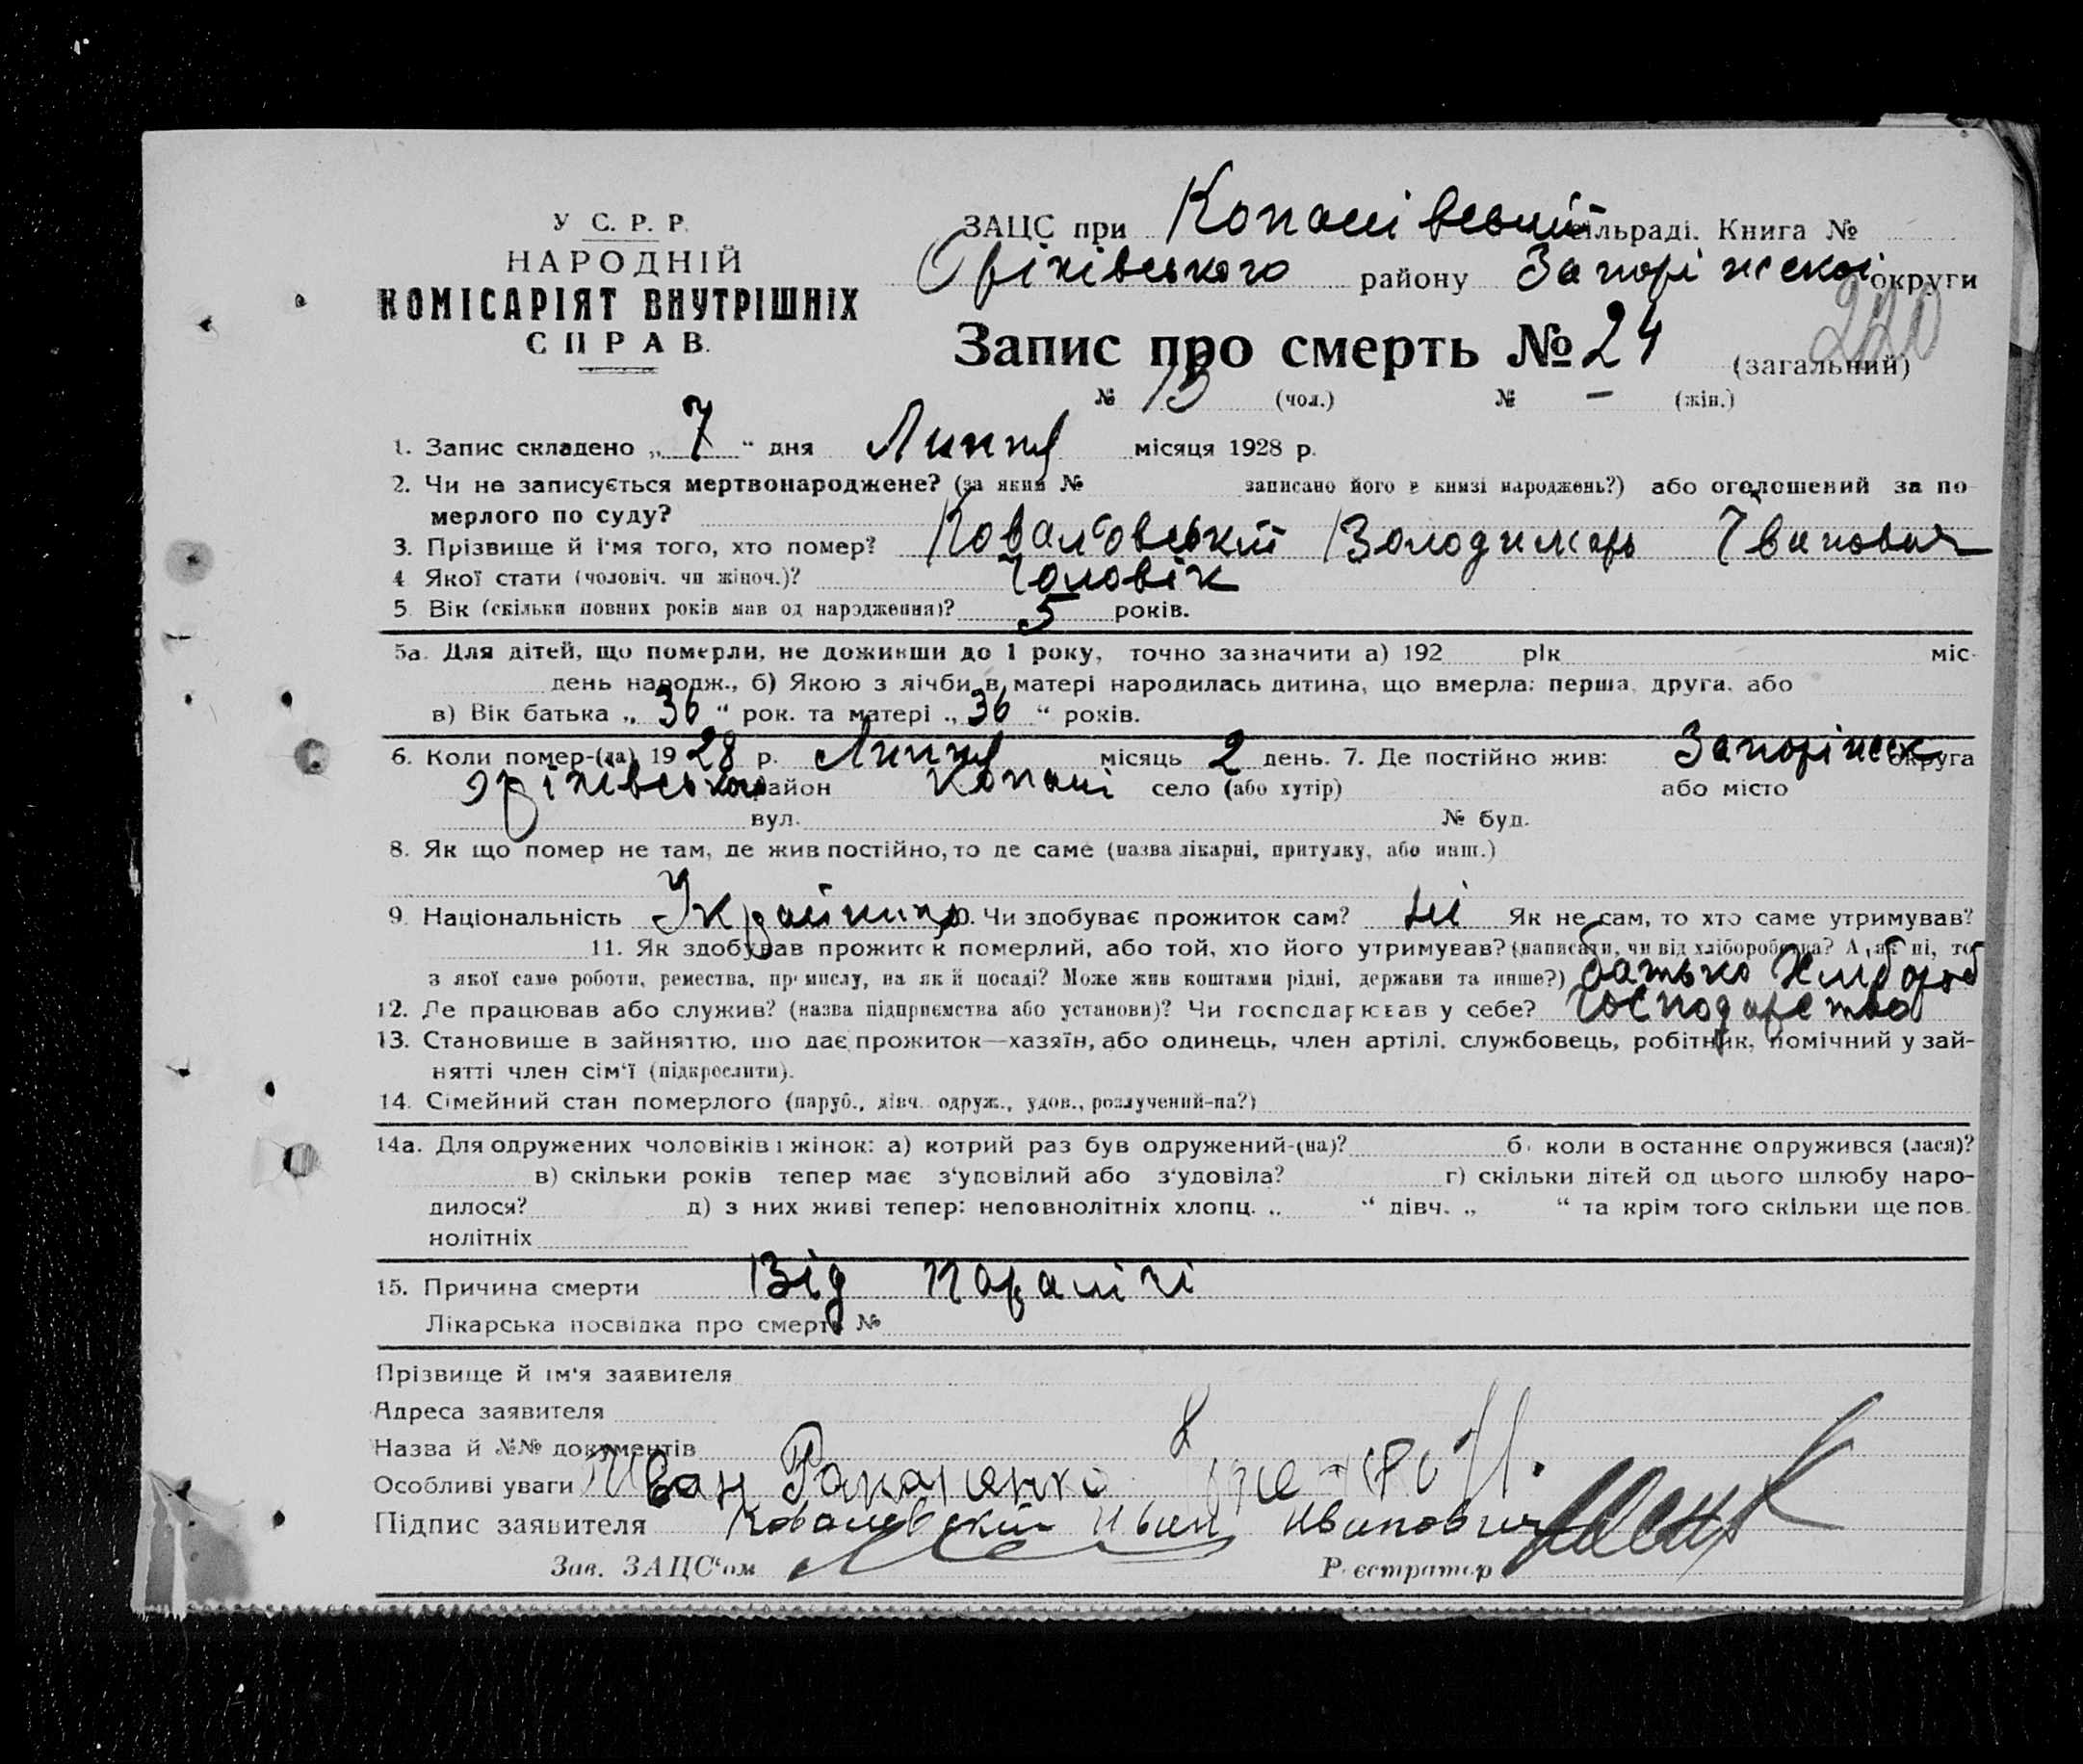 У С. Р. Р.
НАРОДНІЙ
КОМІСАРІЯТ ВНУТРІШНІХ
СПРАВ.
ЗАЦС при Копанівській сільраді. Книга №
Оріхівського району Запоріжскої округи
220
Запис про смерть № 24 (загальний)
№ 13 (чол.) № — (жін.)
1. Запис складено „ 7 “ дня Липня місяця 1928 р.
2. Чи не записується мертвонароджене? (за яким № записано його в книзі народжень?) або оголошений за по-
мерлого по суду?
3. Прізвище й ім'я того, хто помер? Ковальовський Володимирь Іванович
4 Якої стати (чоловіч. чи жіноч.)? Чоловік
5. Вік (скільки повних років мав од народження)? 5 років.
5а. Для дітей, що померли, не доживши до 1 року, точно зазначити а) 192 рік міс-
день народж., б) Якою з лічби в матері народилась дитина, що вмерла: перша, друга, або
в) Вік батька „ 36 “ рок. та матері „ 36 “ років.
6. Коли помер-(ла) 19 28 р. Липня місяць 2 день. 7. Де постійно жив: Запоріжск округа
Оріхівського район Копані село (або хутір) або місто
вул. № буд.
8. Як що помер не там, де жив постійно, то де саме (назва лікарні, притулку, або инш.)
9. Національність Українец 10. Чи здобуває прожиток сам? ні Як не сам, то хто саме утримував?
11. Як здобував прожиток померлий, або той, хто його утримував? (написати, чи від хліборобства? А як ні, то
з якої саме роботи, ремества, промислу, на якій посаді? Може жив коштами рідні, держави та инше?) батько Хлібороб
12. Де працював або служив? (назва підприємства або установи)? Чи господарював у себе? Господарство
13. Становище в зайняттю, що дає прожиток—хазяїн, або одинець, член артілі, службовець, робітник, помічний у зай-
нятті член сім'ї (підкреслити).
14. Сімейний стан померлого (паруб., дівч. одруж., удов., розлучений-на?)
14а. Для одружених чоловіків і жінок: а) котрий раз був одружений-(на)? б) коли востаннє одружився (лася)?
в) скільки років тепер має з'удовілий або з'удовіла? г) скільки дітей од цього шлюбу наро-
дилося? д) з них живі тепер: неповнолітніх хлопц. „ “ дівч. „ “ та крім того скільки ще пов-
нолітніх
15. Причина смерти Від паралічі
Лікарська посвідка про смерть №
Прізвище й ім'я заявителя
Адреса заявителя
Назва й №№ документів
Особливі уваги Иван
Підпис заявителя Ковалевский Иван Иванович
Зав. ЗАЦС'ом Реєстратор